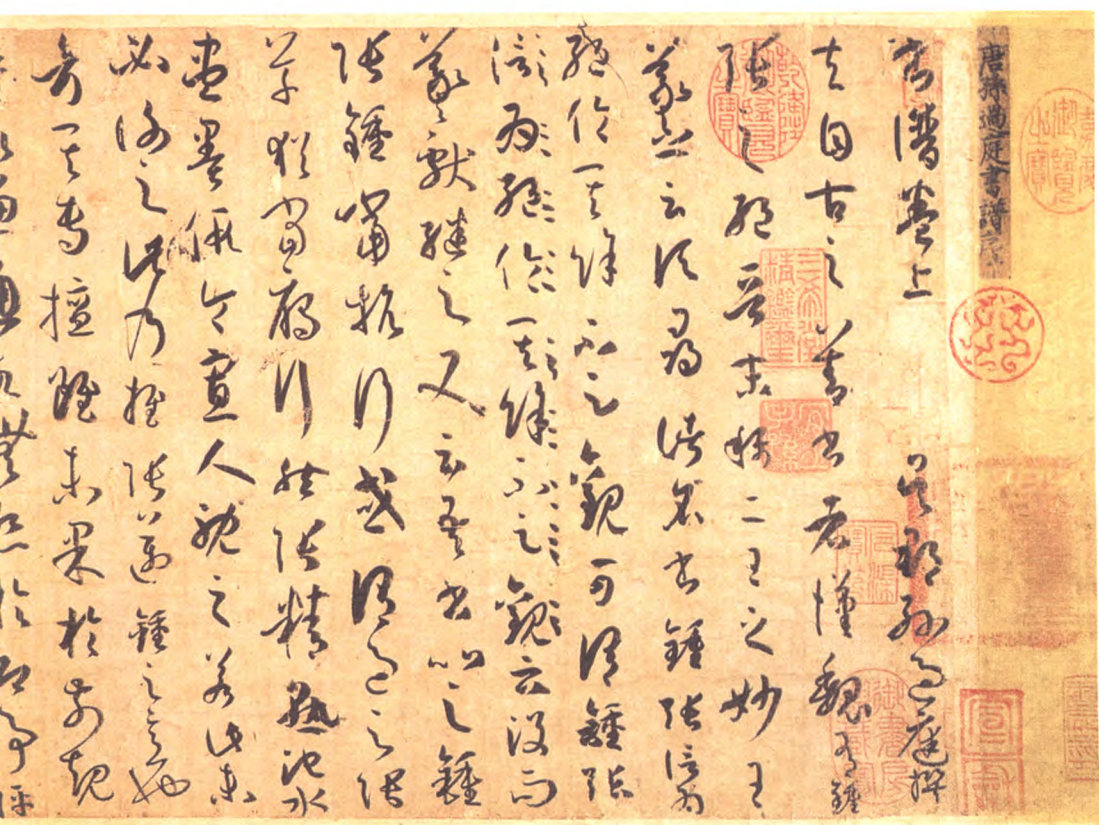 唐孫過庭書譜序
書譜卷上 吳郡孫過庭撰
夫自古之善書者漢魏有鍾
張之絕晉末稱二王之妙王
羲之云頃尋諸名書鍾張信為
絕倫其餘不足觀可謂鍾張
信為絕倫其餘不足觀云沒而
羲獻繼之又云吾書比之鍾
張鍾當抗行或謂過之張
草猶當鴈行然張精熟池水
盡墨假令寡人耽之若此未
必謝之此乃推張邁鍾之意也
考其專擅雖未果於前規
以兼通故無慚於即事評
三希堂精鑑璽
宜子孫